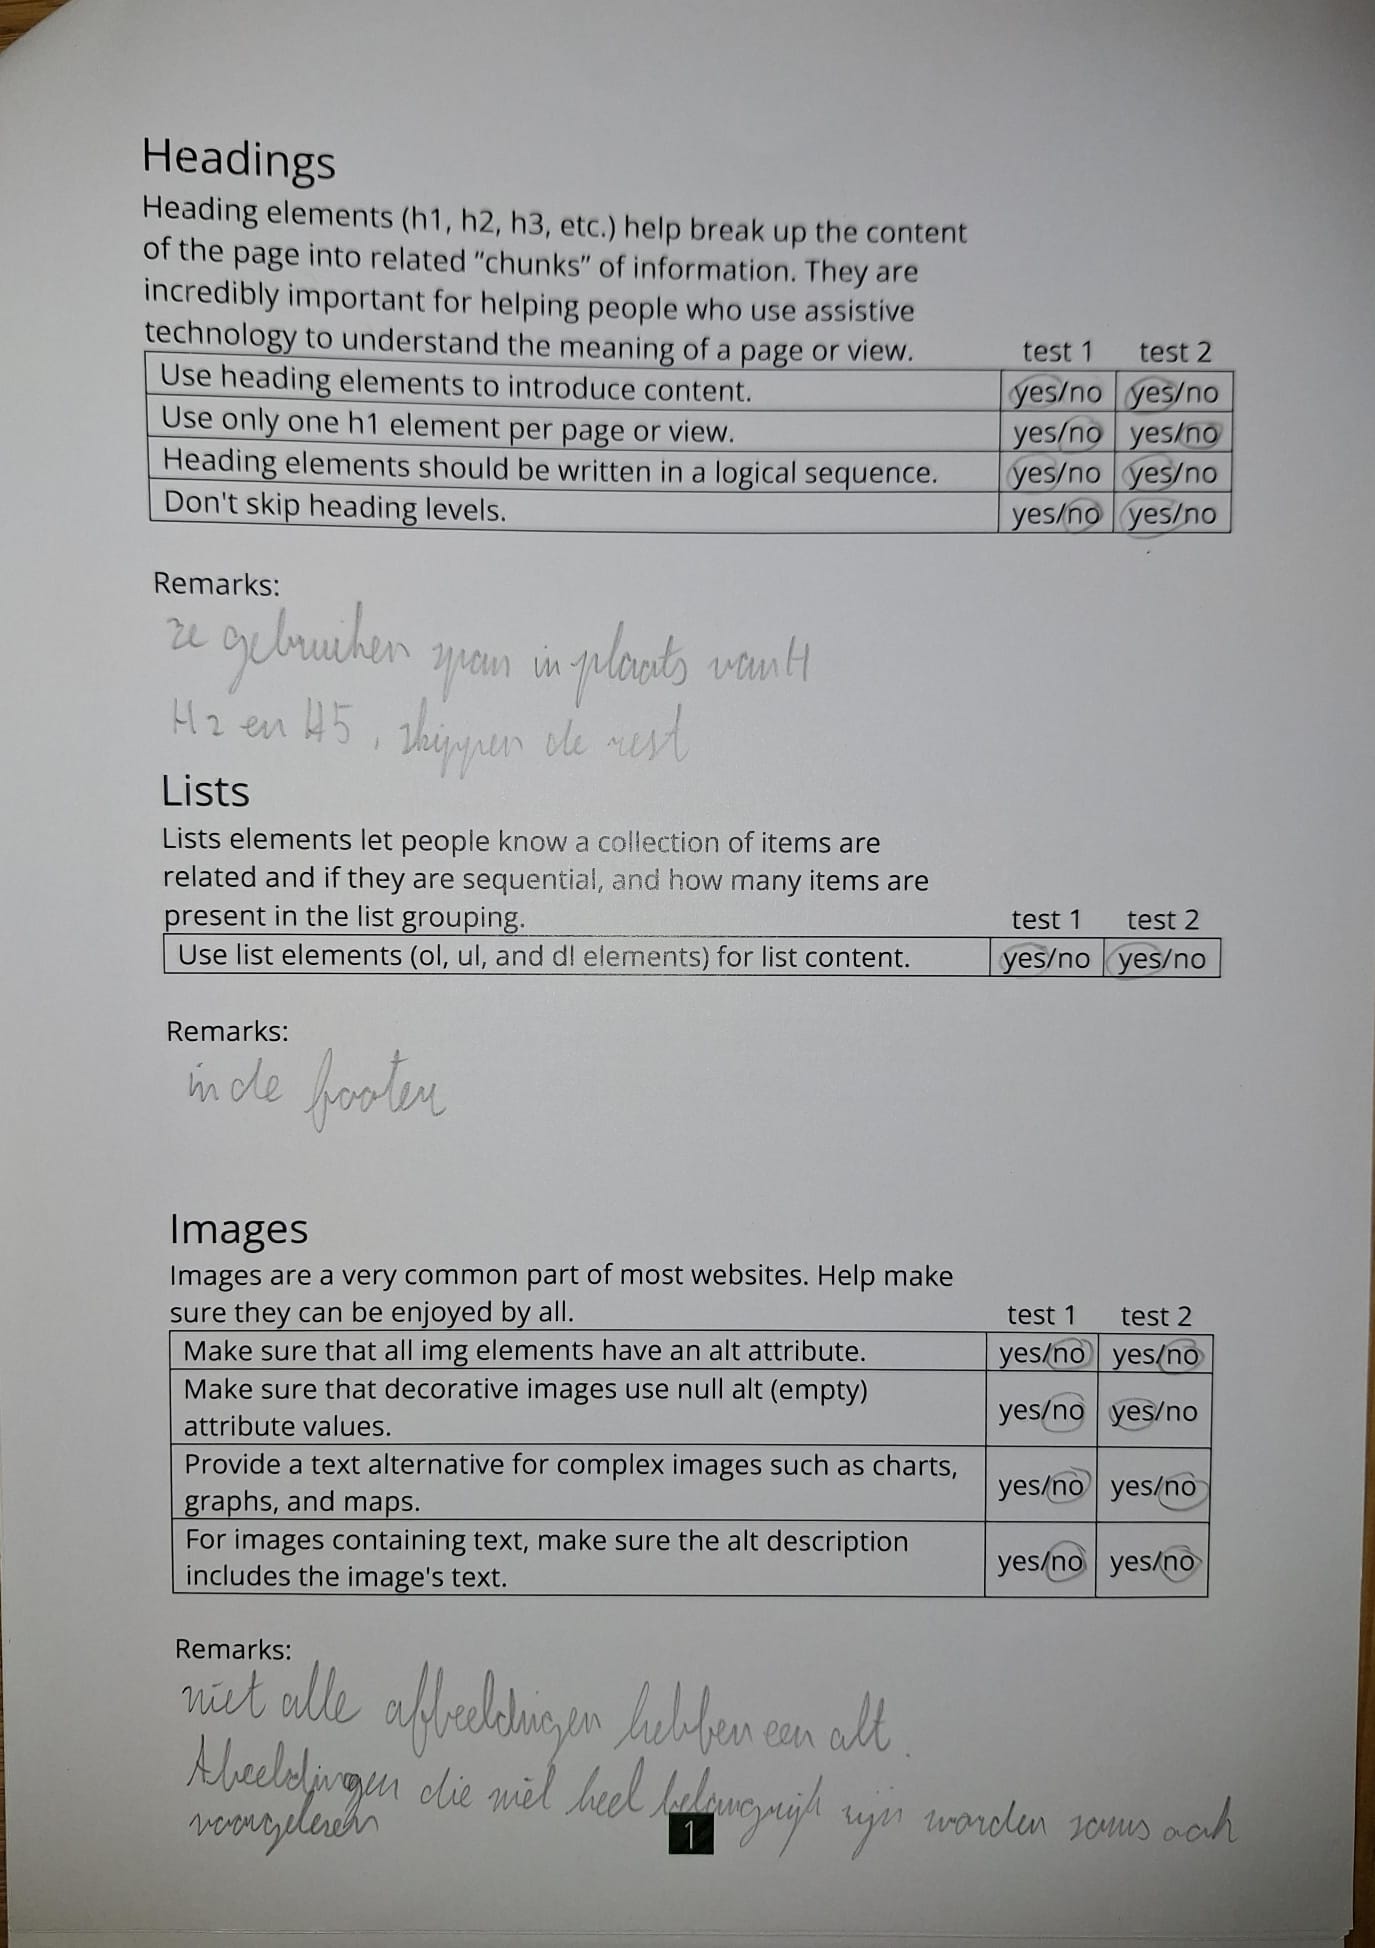 Headings
Heading elements (h1, h2, h3, etc.) help break up the content
of the page into related "chunks" of information. They are
incredibly important for helping people who use assistive
technology to understand the meaning of a page or view. test 1 test 2
Use heading elements to introduce content. yes/no yes/no
Use only one h1 element per page or view. yes/no yes/no
Heading elements should be written in a logical sequence. yes/no yes/no
Don't skip heading levels. yes/no yes/no
Remarks:
ze gebruiken span in plaats van H
H2 en H5, skippen de rest
Lists
Lists elements let people know a collection of items are
related and if they are sequential, and how many items are
present in the list grouping. test 1 test 2
Use list elements (ol, ul, and dl elements) for list content. yes/no yes/no
Remarks:
in de footer
Images
Images are a very common part of most websites. Help make
sure they can be enjoyed by all. test 1 test 2
Make sure that all img elements have an alt attribute. yes/no yes/no
Make sure that decorative images use null alt (empty)
attribute values. yes/no yes/no
Provide a text alternative for complex images such as charts,
graphs, and maps. yes/no yes/no
For images containing text, make sure the alt description
includes the image's text. yes/no yes/no
Remarks:
niet alle afbeeldingen hebben een alt.
Abeeldingen die niet heel belangrijk zijn worden soms ook
voorgelezen
1